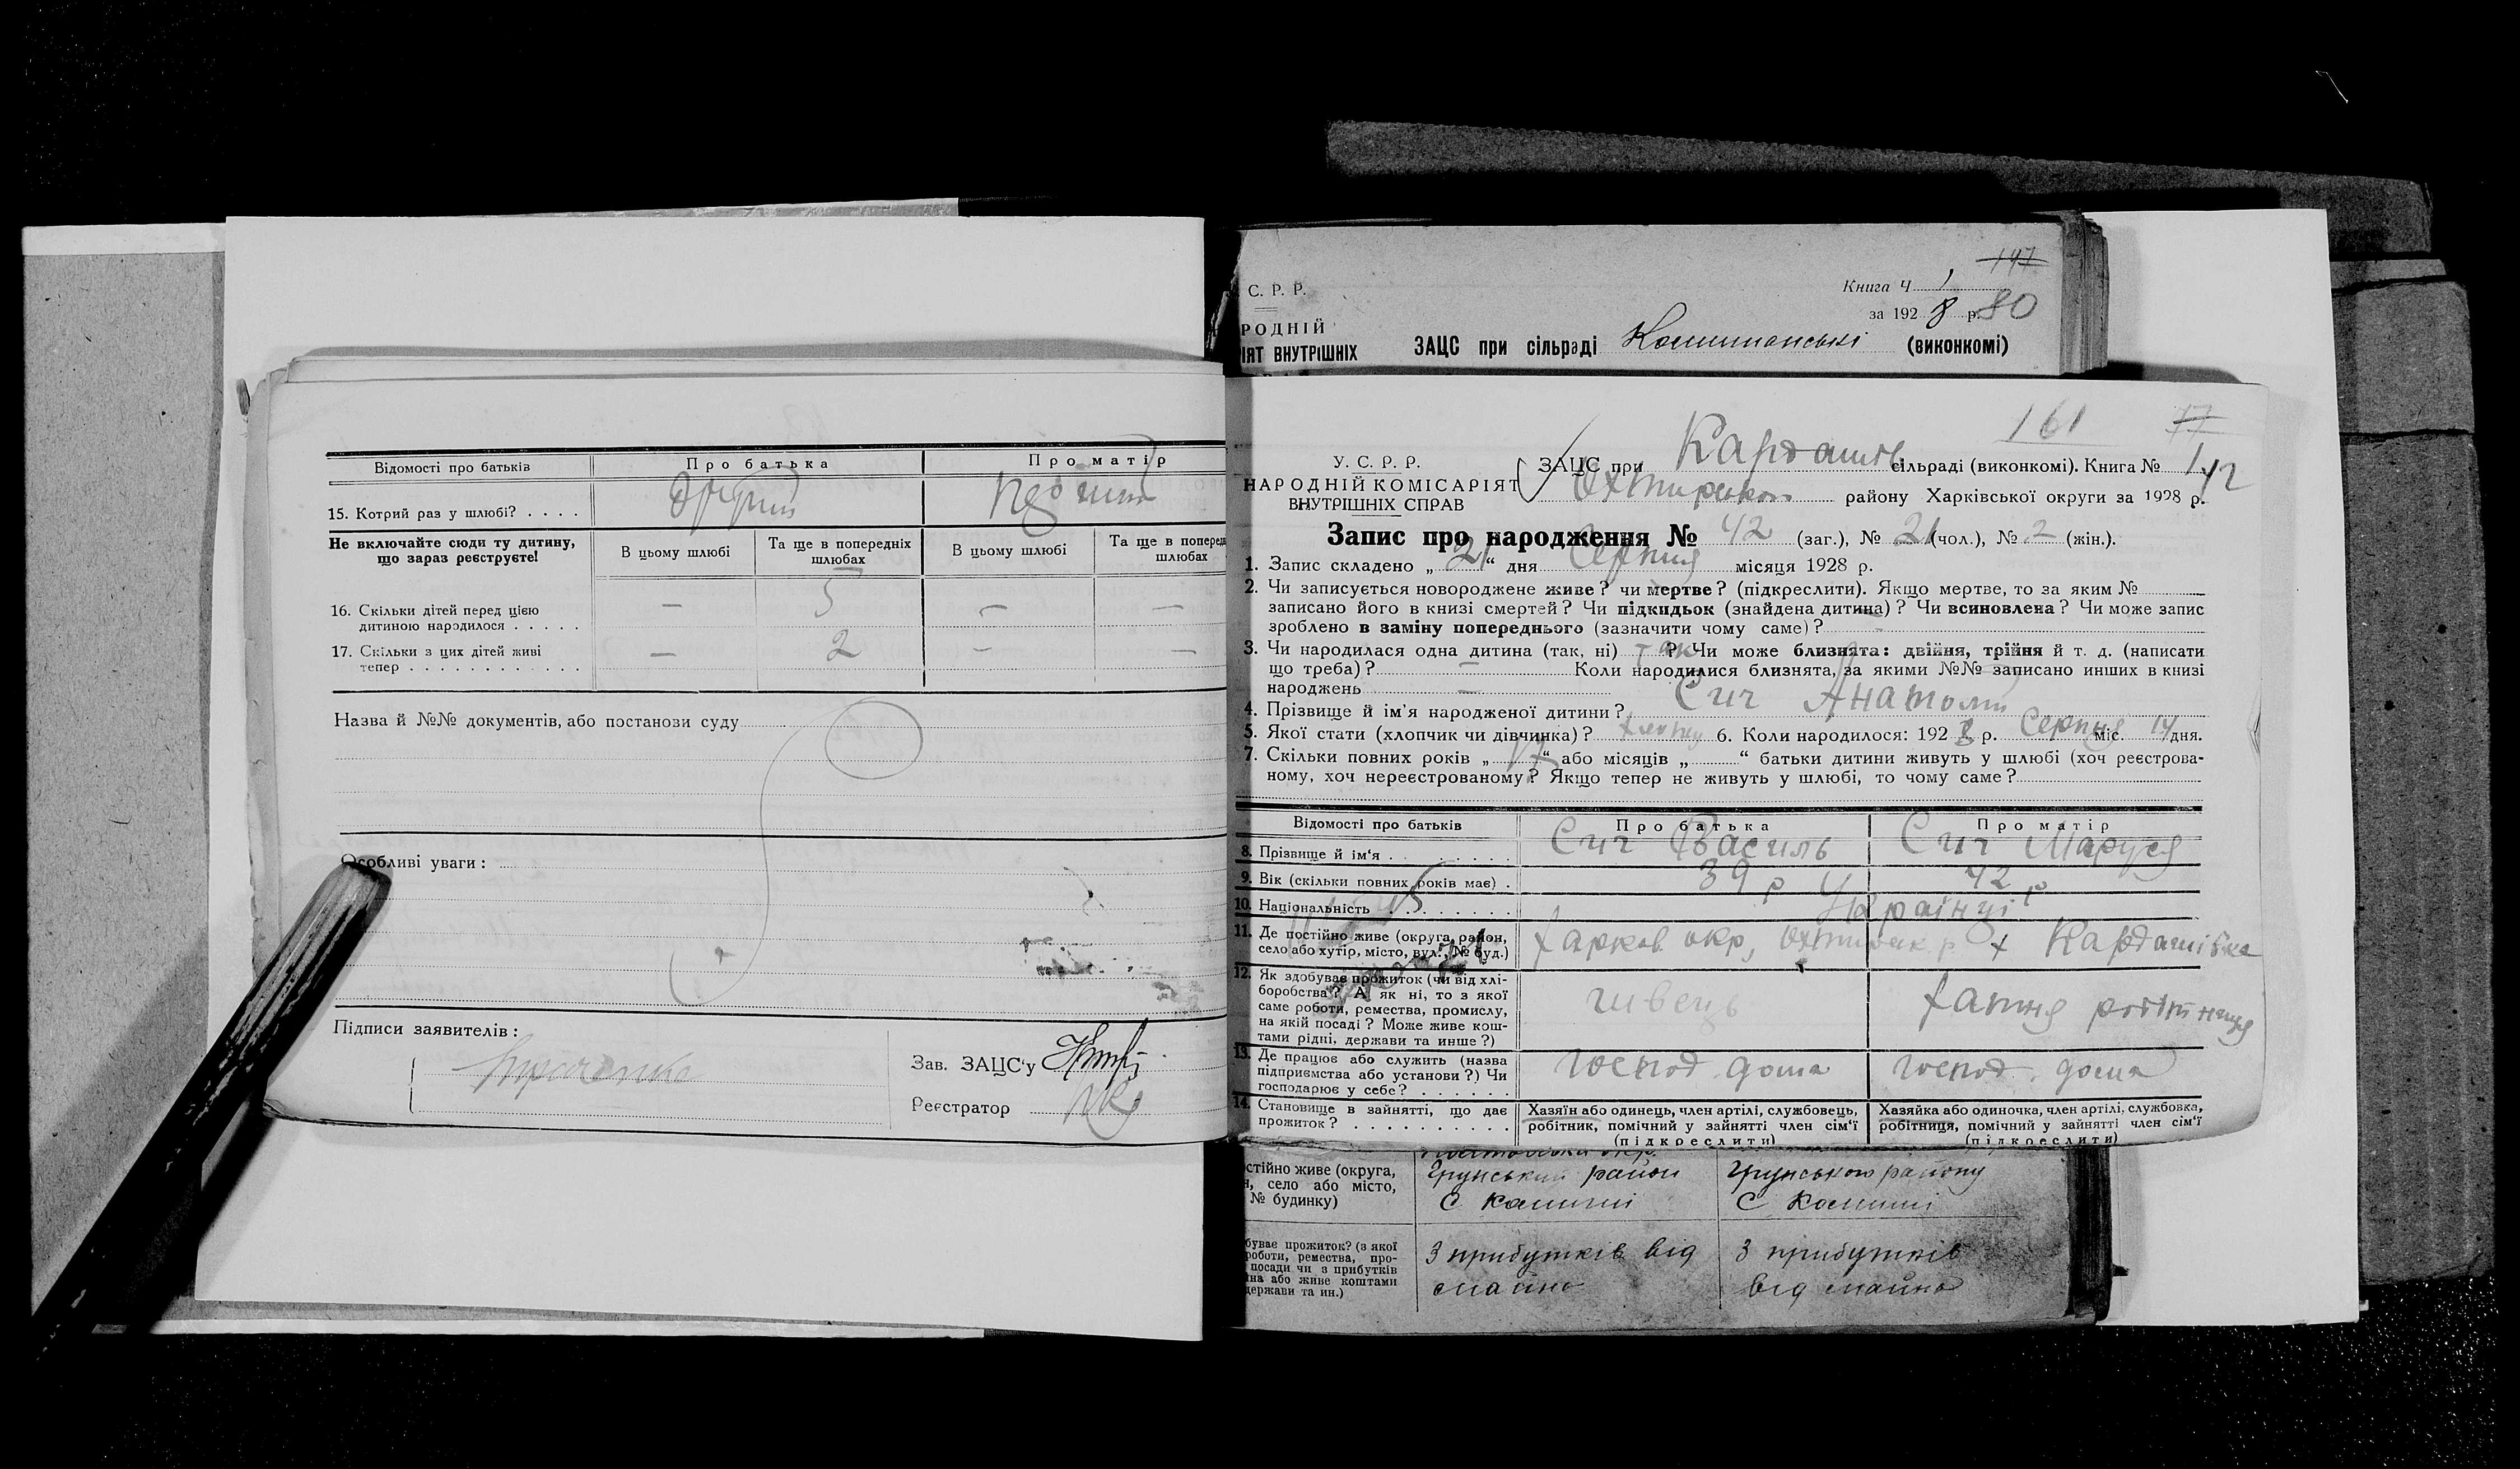 Відомості про батьків
Про батька
Про матір
15. Котрий раз у шлюбі? . . . .
другий
Не включайте сюди ту дитину,
що зараз реєструєте!
В цьому шлюбі
Та ще в попередніх
шлюбах
В цьому шлюбі
Та ще в поперед
шлюбах
16. Скільки дітей перед цією
дитиною народилося . . . . .
— 5 — —
17. Скільки з цих дітей живі
тепер . . . . . . . . . . . .
— 2 — —
Назва й №№ документів, або постанови суду
Особливі уваги:
Підписи заявителів:
Зав. ЗАЦС'у
Реєстратор
147
С. Р. Р.
Книга Ч 1
за 1928 р. 80
РОДНІЙ
ІЯТ ВНУТРІШНІХ
ЗАЦС при сільраді (виконкомі)
161 77
У. С. Р. Р.
НАРОДНІЙ КОМІСАРІЯТ
ВНУТРІШНІХ СПРАВ
ЗАЦС при Кардашів сільраді (виконкомі). Книга № 1
142
Охтирськог району Харківської округи за 1928 р.
Запис про народження № 42 (заг.), № 21 (чол.), № 2 (жін.).
1. Запис складено „21“ дня Серпня місяця 1928 р.
2. Чи записується новороджене живе? чи мертве? (підкреслити). Якщо мертве, то за яким №
записано його в книзі смертей? Чи підкидьок (знайдена дитина)? Чи всиновлена? Чи може запис
зроблено в заміну попереднього (зазначити чому саме)? —
3. Чи народилася одна дитина (так, ні) так? Чи може близнята: двійня, трійня й т. д. (написати
що треба)? — Коли народилися близнята, за якими №№ записано инших в книзі
народжень —
4. Прізвище й ім'я народженої дитини? Сич Анатолій
5. Якої стати (хлопчик чи дівчинка)? хлопчик 6. Коли народилося: 1928 р. Серпня міс. 14 дня.
7. Скільки повних років „ “ або місяців „ “ батьки дитини живуть у шлюбі (хоч реєстрова-
ному, хоч нереєстрованому? Якщо тепер не живуть у шлюбі, то чому саме?
Відомості про батьків
Про батька
Про матір
8. Прізвище й ім'я . . . . . . . .
Сич Василь
Сич Маруся
9. Вік (скільки повних років має) .
39 р
42 р
10. Національність . . . . . . . .
Українці
11. Де постійно живе (округа, район,
село або хутір, місто, вул., № буд.)
Харков окр, Охтирськ р х Кардашівка
12. Як здобуває прожиток (чи від хлі-
боробства? А як ні, то з якої
саме роботи, ремества, промислу,
на якій посаді? Може живе кош-
тами рідні, держави та инше?)
швець
хатня робітниця
13. Де працює або служить (назва
підприємства або установи?) Чи
господарює у себе? . . . . . .
господ. дома
господ. дома
14. Становище в зайнятті, що дає
прожиток? . . . . . . . . . .
Хазяїн або одинець, член артілі, службовець,
робітник, помічний у зайнятті член сім'ї
(підкреслити)
Хазяйка або одиночка, член артілі, службовка,
робітниця, помічний у зайнятті член сім'ї
(підкреслити)
стійно живе (округа,
н, село або місто,
№ будинку)
Грунський район
С Комиші
Грунського району
С Комиші
буває прожиток? (з якої
роботи, ремества, про-
посади чи з прибутків
на або живе коштами
держави та ин.)
З прибутків від
майна
З прибутків
від майна